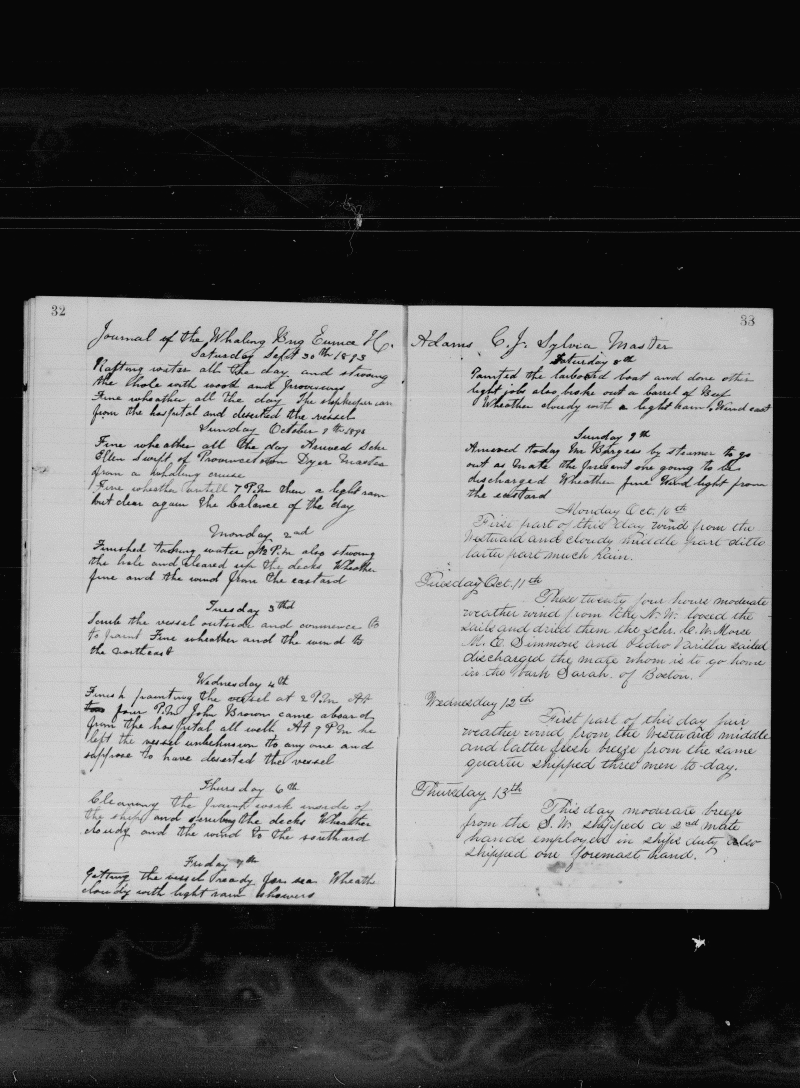 32
Journal of the Whaling Brig Eunice H.
Saturday Sept 30th 1893
Rafting water all the day and stowing
the hole with wood and provisions
Fine wheather all the day The shopkeeper came
from the hospital and deserted the vessel
Sunday October 1th
Fine wheather all the day Arrived Schr
Ellen Swift of Provincetown Dyer Master
from a whaling cruise
Fine wheather untill 7 P.M then a light rain
but clear again the balance of the day
Monday 2nd
Finished taking water P.M also stowing
the hole and cleared up the decks Wheather
fine and the wind from the eastard
Tuesday 3thd
Scrub the vessel outside and commence
to paint Fine wheather and the wind to
the northeast
Wednesday 4th
Finish painting the vessel at 2 P.M At
four P.M John Brown came aboard
from the hospital all well At 9 P.M he
left the vessel unbeknown to any one and
suppose to have deserted the vessel
Thursday 6th
Cleaning the paint work inside of
the ship and scrubing the decks Wheather
cloudy and the wind to the southard
Friday 7th
Getting the vessel ready for sea Wheathe
cloudy with light rain showers
33
Adams C. J. Sylvia Master
Saturday 8th
Painted the larboard boat and done other
light jobs also broke out a barrel of Beef
Wheather cloudy with a light rain & Wind east
Sunday 9th
Arrived today Mr Borgess by steamer to go
out as mate the present one going to be
discharged Wheather fine Wind light from
the eastard
Monday Oct. 10th
First part of this day wind from the
Westward and cloudy middle part ditto
latter part much Rain.
Tuesday Oct. 11th
These twenty four hours moderate
weather wind from the N. W. loosed the
sails and dried them the schr. C. W. Morse
M. E. Simmons and Pedro Varilla sailed
discharged the mate whom is to go home
in the bark Sarah. of Boston.
Wednesday 12th
First part of this day fair
weather wind from the Westward middle
and latter fresh breeze from the same
quarter shipped three men to-day.
Thursday. 13th
This day moderate breeze
from the S. W. shipped a 2nd mate
hands employed in ships duty also
shipped one foremast hand.